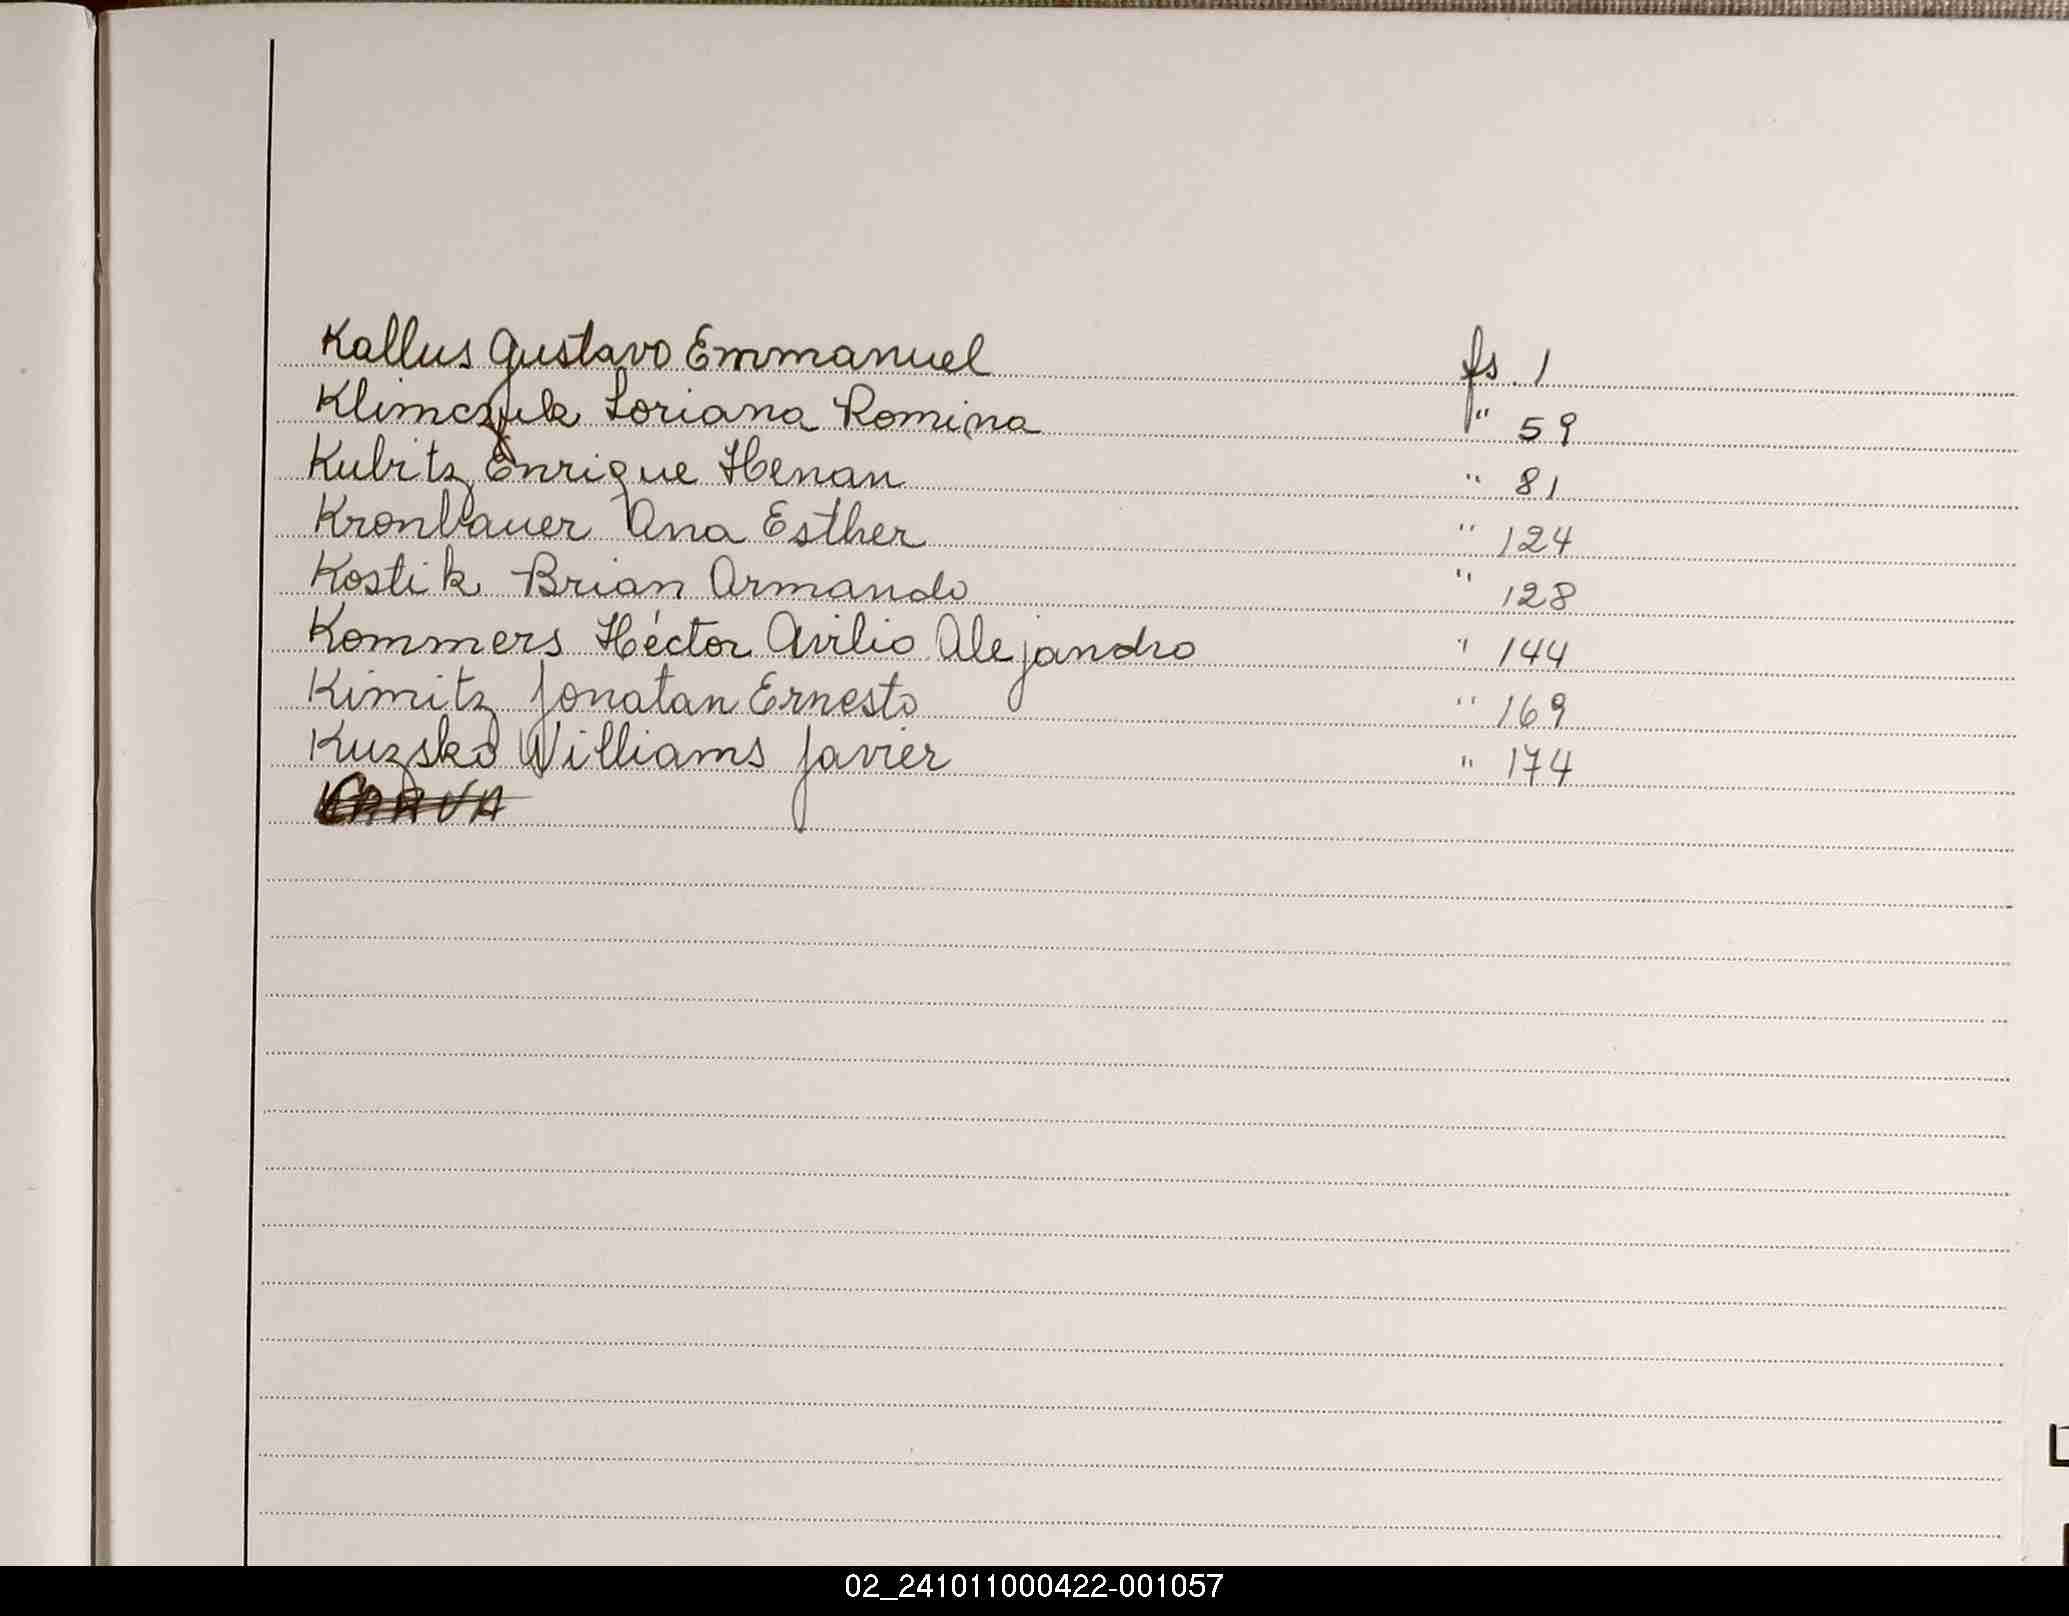 Kallus Gustavo Emmanuel fs. 1
Klimczuk Loriana Romina " 59
Kubitz Enrique Henan " 81
Kronbauer Ana Esther " 124
Kostik Brian Armando " 128
Kommers Héctor Avilio Alejandro " 144
Kimitz Jonatan Ernesto " 169
Kuzsko Williams Javier " 174
02_241011000422-001057